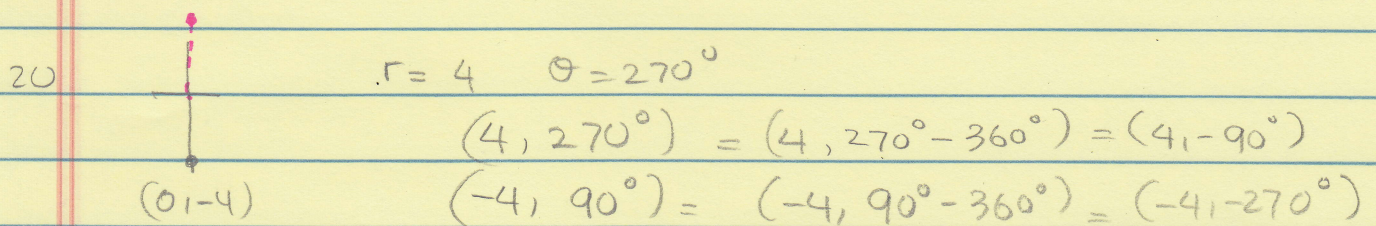 20 r = 4 θ = 270°
(4, 270°) = (4, 270° - 360°) = (4, -90°)
(0, -4) (-4, 90°) = (-4, 90° - 360°) = (-4, -270°)